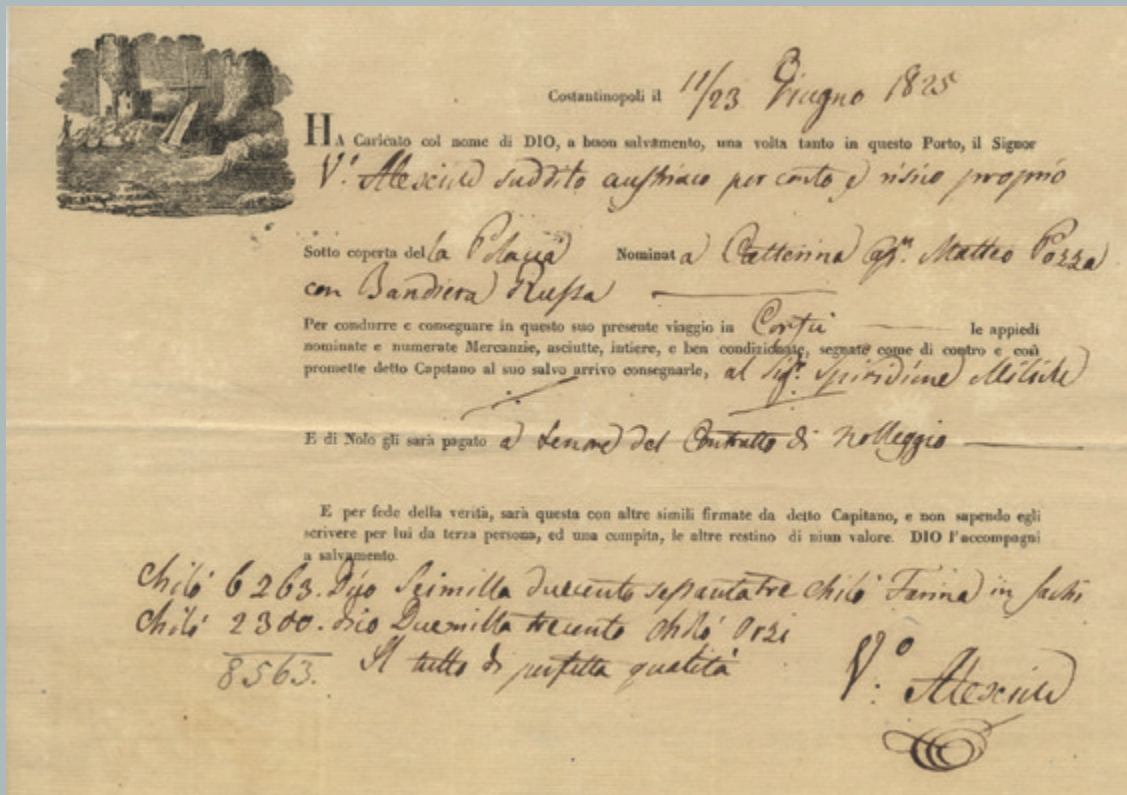 Costantinopoli il 11/23 Giugno 1825
HA Caricato col nome di DIO, a buon salvamento, una volta tanto in questo Porto, il Signor
Vº. Alesciuk suddito austriaco per conto e risico proprio
Sotto coperta della Polacca Nominata Catterina Matteo Pozza
con Bandiera Russa
Per condurre e consegnare in questo suo presente viaggio in Corfù le appiedi
nominate e numerate Mercanzie, asciutte, intiere, e ben condizionate, segnate come di contro e così
promette detto Capitano al suo salvo arrivo consegnarle, al Sigr. Spiridione
E di Nolo gli sarà pagato a tenore del Contratto di Nolleggio
E per fede della verità, sarà questa con altre simili firmate da detto Capitano, e non sapendo egli
scrivere per lui da terza persona, ed una compita, le altre restino di niun valore. DIO l'accompagni
a salvamento.
Chilò 6263. Dico Seimilla duecento sessantatre chilò Farina in sachi
Chilò 2300. dico Duemilla trecento chilò Orzi
8563. Il tutto di perfetta qualità
Vº.